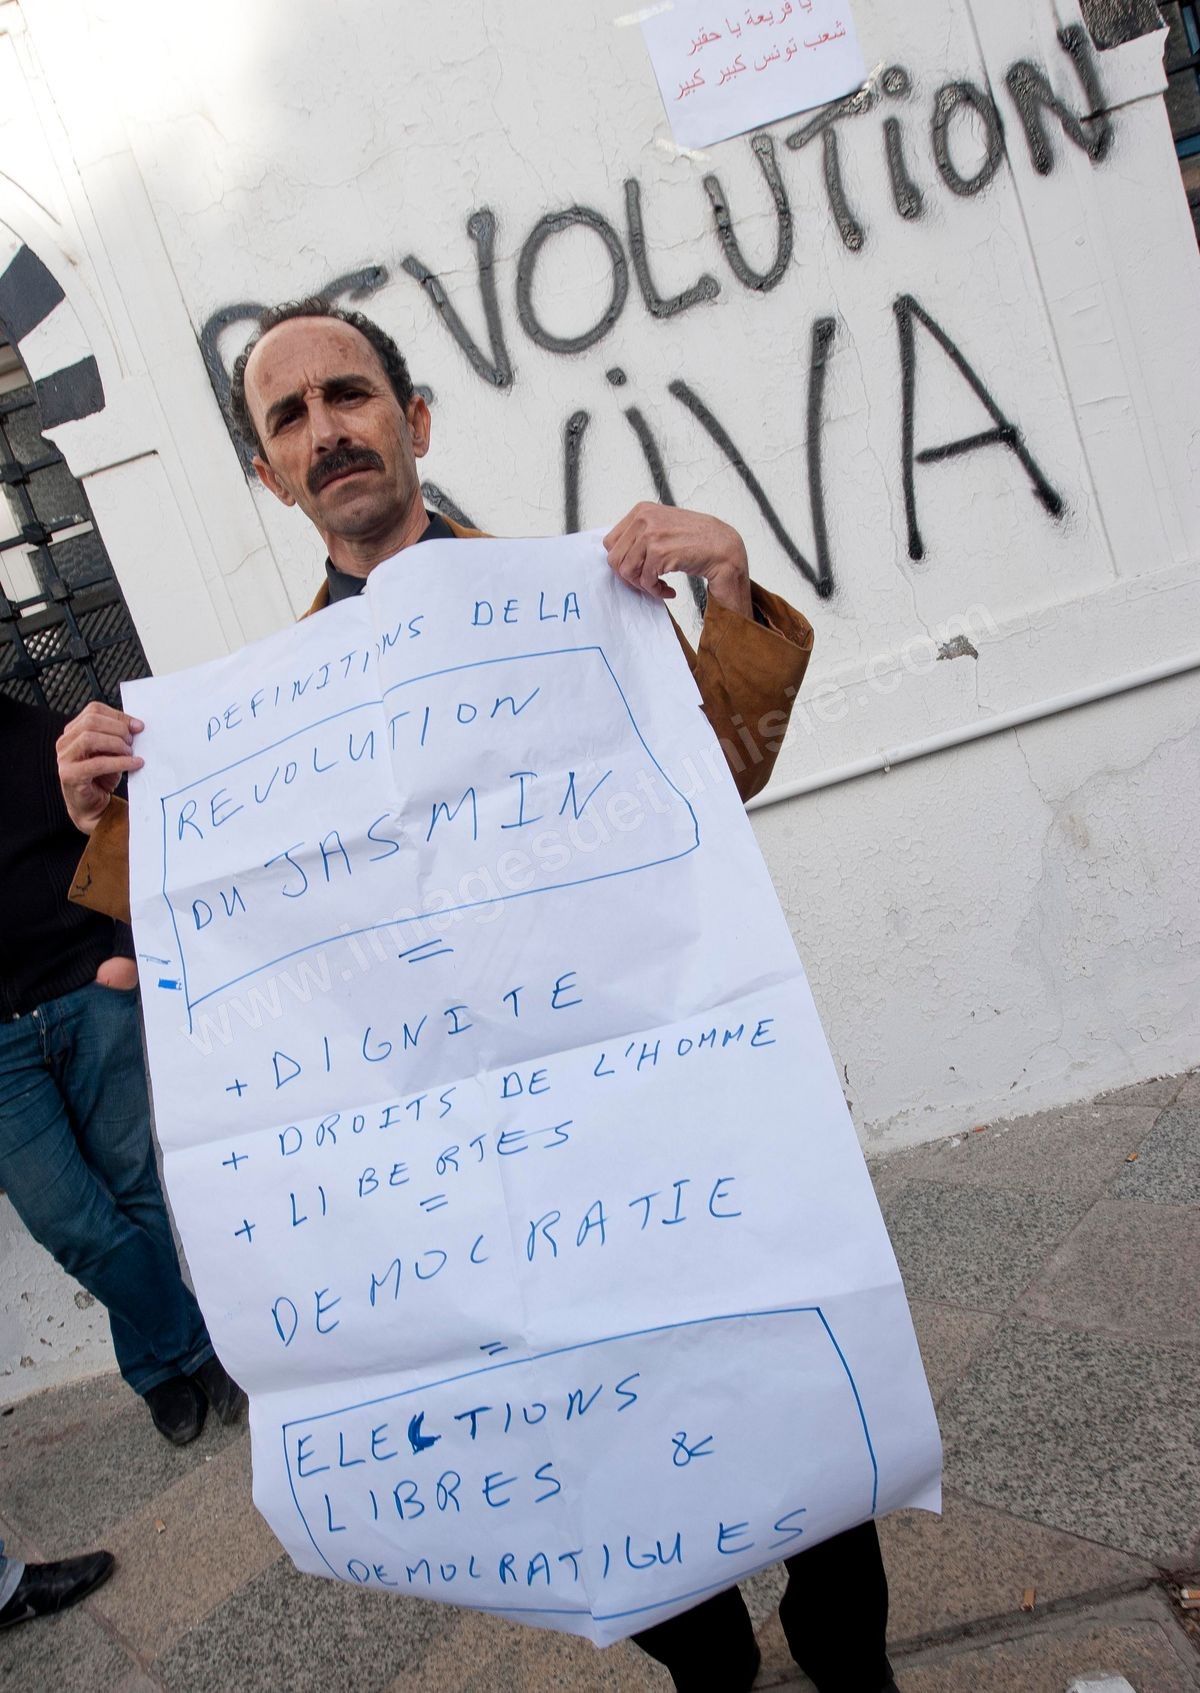 يا قريعة يا حقير
شعب تونس كبير كبير
REVOLUTiON
ViVA
DEFINITIONS DE LA
REVOLUTION
DU JASMIN
=
+ DIGNITE
+ DROITS DE L'HOMME
+ LIBERTES
=
DEMOCRATIE
=
ELECTIONS
LIBRES &
DEMOCRATIQUES
www.imagesdetunisie.com